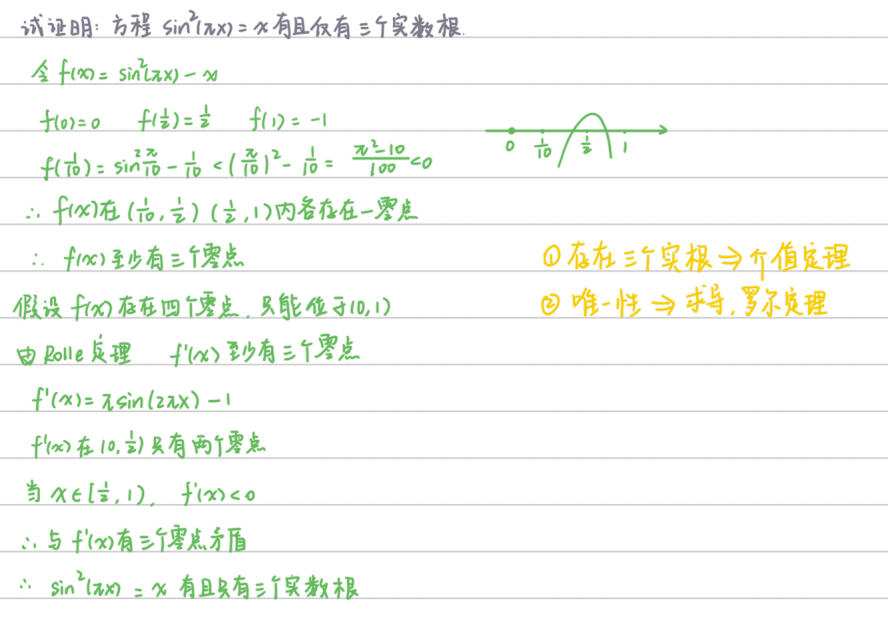 试证明: 方程 sin²(πx) = x 有且仅有三个实数根.
令 f(x) = sin²(πx) - x
f(0)=0 f(1/2)=1/2 f(1)=-1
f(1/10) = sin² π/10 - 1/10 < (π/10)² - 1/10 = (π²-10)/100 < 0
0 1/10 1/2 1
∴ f(x)在(1/10, 1/2) (1/2, 1)内各存在一零点
∴ f(x)至少有三个零点
① 存在三个实根 ⇒ 介值定理
假设 f(x) 存在四个零点, 只能位于(0,1)
② 唯一性 ⇒ 求导, 罗尔定理
由 Rolle 定理 f'(x) 至少有三个零点
f'(x) = πsin(2πx) - 1
f'(x) 在 (0, 1/2) 只有两个零点
当 x∈[1/2, 1), f'(x) < 0
∴ 与 f'(x) 有三个零点矛盾
∴ sin²(πx) = x 有且只有三个实数根